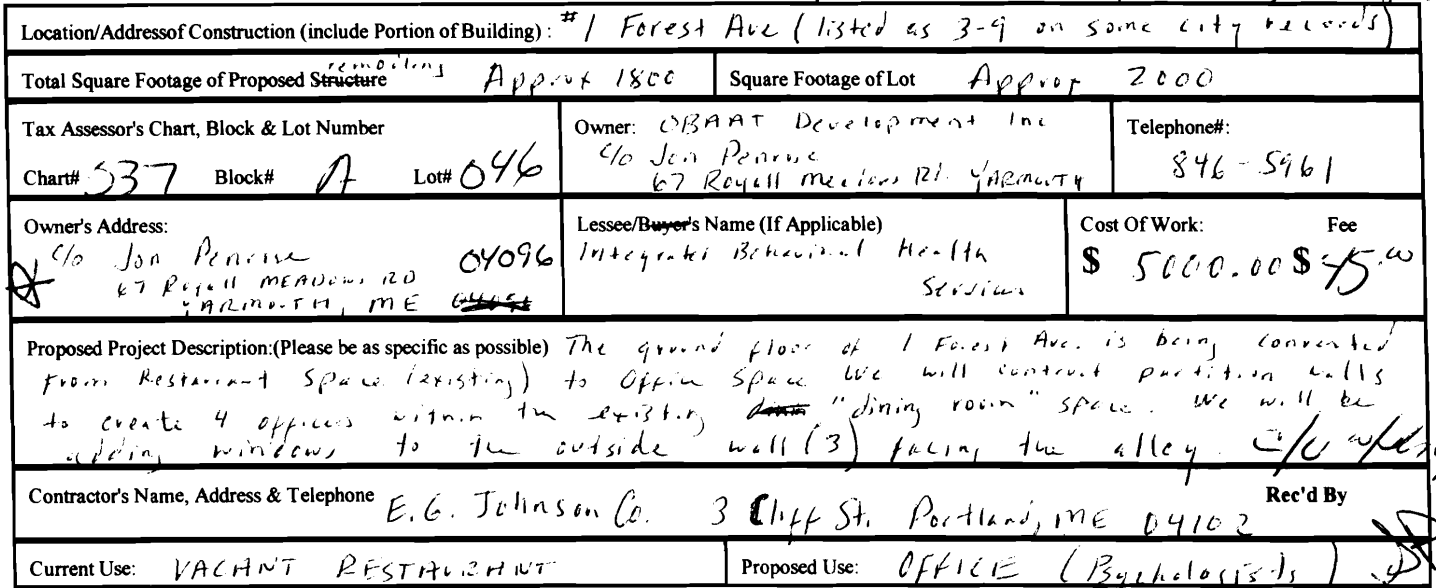 Location/Addressof Construction (include Portion of Building) : #1 Forest Ave (listed as 3-9 on some city records)
Total Square Footage of Proposed Structure remodling Approx 1800
Square Footage of Lot Approx 2000
Tax Assessor's Chart, Block & Lot Number
Chart# 037 Block# A Lot# 046
Owner: OBAAT Development Inc
c/o Jon Penrose
67 Royall Meadows Rd. YARMOUTH
Telephone#:
846-5961
Owner's Address:
c/o Jon Penrose 04096
67 Royall MEADOWS RD
YARMOUTH, ME
Lessee/Buyer's Name (If Applicable)
Integrated Behavioral Health
Services
Cost Of Work: Fee
$ 5000.00 $ 45.00
Proposed Project Description:(Please be as specific as possible) The ground floor of 1 Forest Ave. is being converted
from Restaurant Space (existing) to Office Space We will contruct partition walls
to create 4 offices within the existing "dining room" space. We will be
adding windows to the outside wall (3) facing the alley.
Contractor's Name, Address & Telephone E.G. Johnson Co. 3 Cliff St. Portland, ME 04102
Rec'd By
Current Use: VACANT RESTAURANT
Proposed Use: OFFICE (Psychologists)